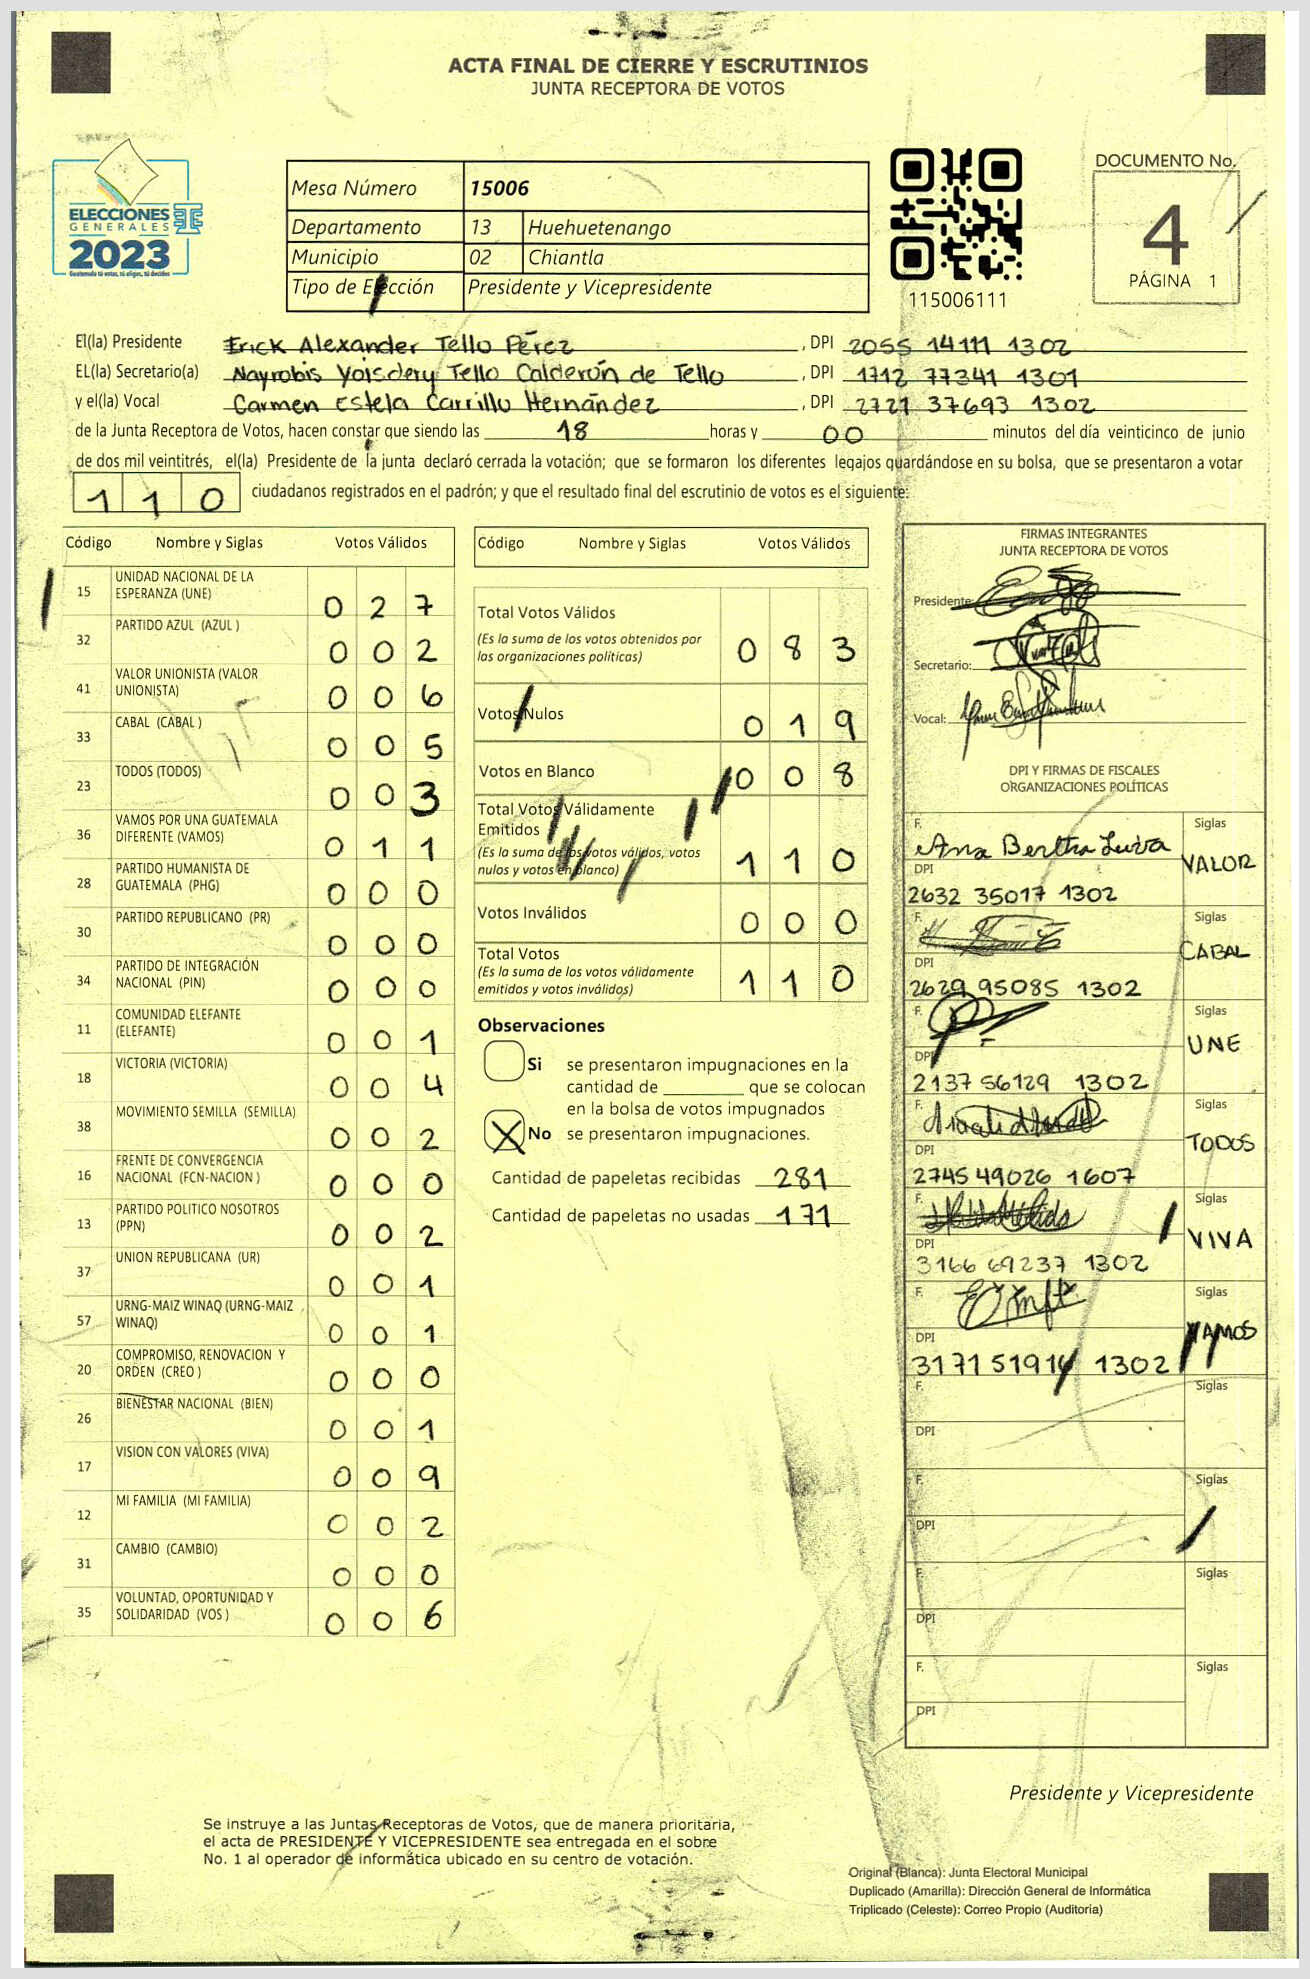 ACTA FINAL DE CIERRE Y ESCRUTINIOS
JUNTA RECEPTORA DE VOTOS
ELECCIONES
GENERALES
2023
Guatemala tú votas, tú eliges, tú decides
Mesa Número 15006
Departamento 13 Huehuetenango
Municipio 02 Chiantla
Tipo de Elección Presidente y Vicepresidente
115006111
DOCUMENTO No.
4
PÁGINA 1
El(la) Presidente Erick Alexander Tello Pérez , DPI 2055 14111 1302
EL(la) Secretario(a) Nayrobis Yoisdery Tello Calderón de Tello , DPI 1712 77341 1301
y el(la) Vocal Carmen Estela Carrillo Hernández , DPI 2721 37693 1302
de la Junta Receptora de Votos, hacen constar que siendo las 18 horas y 00 minutos del día veinticinco de junio
de dos mil veintitrés, el(la) Presidente de la junta declaró cerrada la votación; que se formaron los diferentes legajos guardándose en su bolsa, que se presentaron a votar
110 ciudadanos registrados en el padrón; y que el resultado final del escrutinio de votos es el siguiente:
Código Nombre y Siglas Votos Válidos
15 UNIDAD NACIONAL DE LA ESPERANZA (UNE) 0 2 7
32 PARTIDO AZUL (AZUL ) 0 0 2
41 VALOR UNIONISTA (VALOR UNIONISTA) 0 0 6
33 CABAL (CABAL ) 0 0 5
23 TODOS (TODOS) 0 0 3
36 VAMOS POR UNA GUATEMALA DIFERENTE (VAMOS) 0 1 1
28 PARTIDO HUMANISTA DE GUATEMALA (PHG) 0 0 0
30 PARTIDO REPUBLICANO (PR) 0 0 0
34 PARTIDO DE INTEGRACIÓN NACIONAL (PIN) 0 0 0
11 COMUNIDAD ELEFANTE (ELEFANTE) 0 0 1
18 VICTORIA (VICTORIA) 0 0 4
38 MOVIMIENTO SEMILLA (SEMILLA) 0 0 2
16 FRENTE DE CONVERGENCIA NACIONAL (FCN-NACION ) 0 0 0
13 PARTIDO POLITICO NOSOTROS (PPN) 0 0 2
37 UNION REPUBLICANA (UR) 0 0 1
57 URNG-MAIZ WINAQ (URNG-MAIZ WINAQ) 0 0 1
20 COMPROMISO, RENOVACION Y ORDEN (CREO ) 0 0 0
26 BIENESTAR NACIONAL (BIEN) 0 0 1
17 VISION CON VALORES (VIVA) 0 0 9
12 MI FAMILIA (MI FAMILIA) 0 0 2
31 CAMBIO (CAMBIO) 0 0 0
35 VOLUNTAD, OPORTUNIDAD Y SOLIDARIDAD (VOS ) 0 0 6
Código Nombre y Siglas Votos Válidos
Total Votos Válidos 0 8 3
(Es la suma de los votos obtenidos por
las organizaciones políticas)
Votos Nulos 0 1 9
Votos en Blanco 0 0 8
Total Votos Válidamente
Emitidos 1 1 0
(Es la suma de los votos válidos, votos
nulos y votos en blanco)
Votos Inválidos 0 0 0
Total Votos 1 1 0
(Es la suma de los votos válidamente
emitidos y votos inválidos)
Observaciones
Si se presentaron impugnaciones en la
cantidad de ________ que se colocan
en la bolsa de votos impugnados
X No se presentaron impugnaciones.
Cantidad de papeletas recibidas 281
Cantidad de papeletas no usadas 171
FIRMAS INTEGRANTES
JUNTA RECEPTORA DE VOTOS
Presidente:
Secretario:
Vocal:
DPI Y FIRMAS DE FISCALES
ORGANIZACIONES POLÍTICAS
F. Ana Bertha Siglas
VALOR
DPI
2632 35017 1302
F. Siglas
CABAL
DPI
2629 95085 1302
F. Siglas
UNE
DPI
2137 56129 1302
F. Siglas
TODOS
DPI
2745 49026 1607
F. Siglas
VIVA
DPI
3166 69237 1302
F. Siglas
VAMOS
DPI
1302
F. Siglas
DPI
F. Siglas
DPI
F. Siglas
DPI
F. Siglas
DPI
Presidente y Vicepresidente
Se instruye a las Juntas Receptoras de Votos, que de manera prioritaria,
el acta de PRESIDENTE Y VICEPRESIDENTE sea entregada en el sobre
No. 1 al operador de informática ubicado en su centro de votación.
Original (Blanca): Junta Electoral Municipal
Duplicado (Amarilla): Dirección General de Informática
Triplicado (Celeste): Correo Propio (Auditoría)